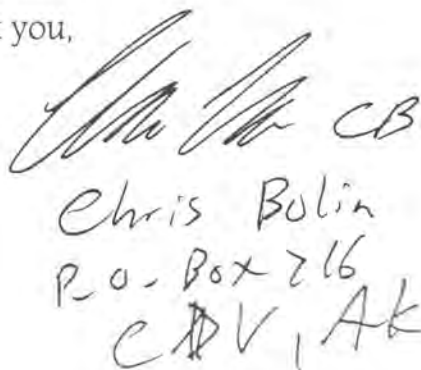 you,
CB
Chris Bolin
P.O. Box 216
CDV, AK